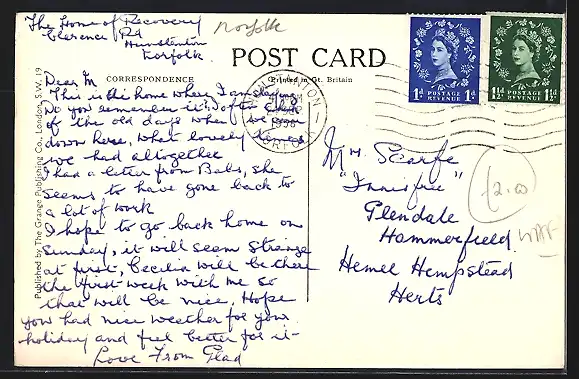 The Home of Recovery
Clarence Rd
Hunstanton
Norfolk
Norfolk
POST CARD
CORRESPONDENCE
Printed in Gt. Britain
Published by The Grange Publishing Co., London, S.W. 19
Dear M
This is the home where I am staying
Do you remember it? I often think
of the old days when we won
down here, what lovely
we had altogether
I had a letter from Babs, she
seems to have gone back to
a lot of work
I hope to go back home on
Sunday, it will seem strange
at first, Cecilia will be there
the first week with me so
that will be nice, Hope
you had nice weather for your
holiday and feel better for it
Love From Glad
HUNSTANTON
1958
NORFOLK
1D POSTAGE REVENUE 1D
1½D POSTAGE REVENUE 1½D
Mrs. Scarfe
"Innisfree"
Glendale
Hammerfield
Hemel Hempstead
Herts
£2.00